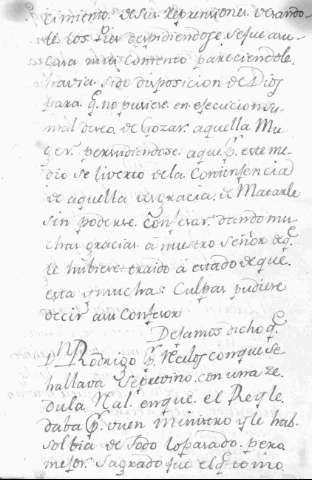 cimiento de sus reprensiones besando-
le los Pies despidiendose se fue a su
Casa mui contento pareciendole
havia sido disposicion de Dios
para q.e no pusiese en execucion su
mal deseo de Gozar aquella Mu
ger persuadiendose a que p.r este me
dio se liverto de la
de aquella desgracia de Matarle
sin poderse confesar dando mu
chas gracias a nuestro Señor de q.e
le hubiese traido a estado de que
esta y muchas Culpas pudiese
decir a su Confesor
Dejamos dicho q.e
D.n Rodrigo p.r Recelos con que se
hallava se previno con una ze
dula Real en que el Rey le
daba p.r buen ministro y le hab
solbia de todo lo pasado pero
mejor sagrado fue el como